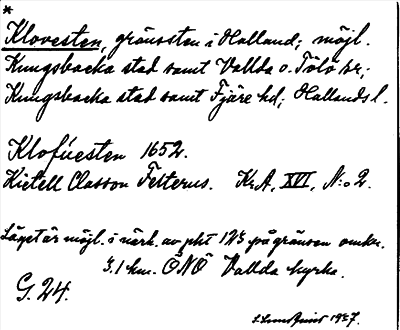 *
Klovesten, gränssten i Halland; möjl.
Kungsbacka stad samt Vallda o. Tölö snr;
Kungsbacka stad samt Fjäre hd; Hallands l.
Klofúesten 1652.
Kietell Classon Felterus. KrA, XVI, N:o 2.
Läget är möjl. i närh. av pkt 123 på gränsen omkr.
3.1 km. ÖNÖ Vallda kyrka.
G. 24.
1937.